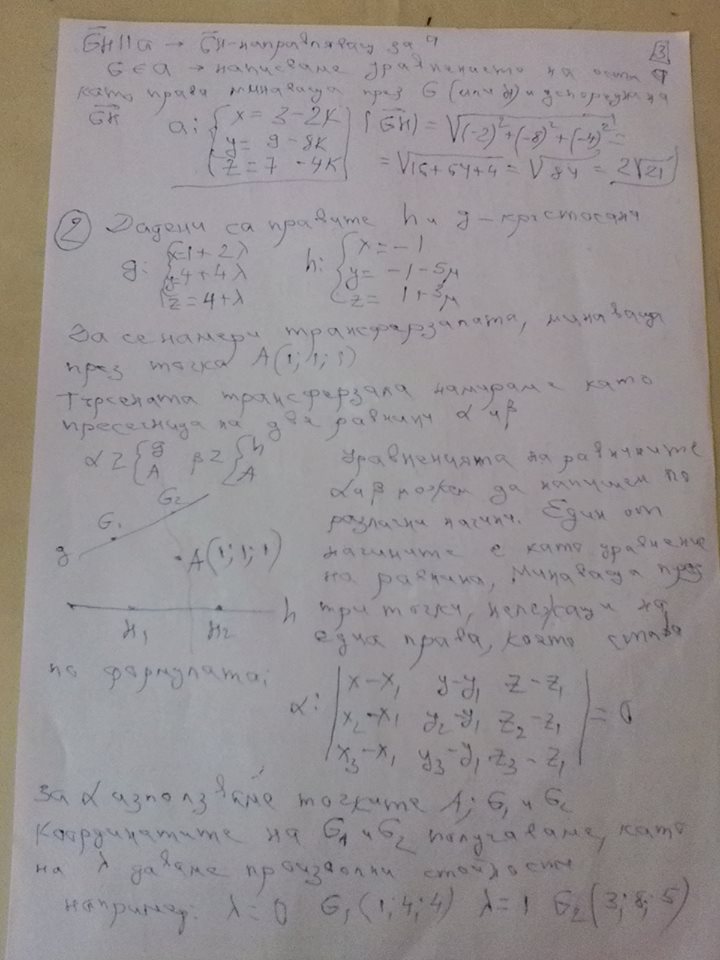 G̅H̅ || a → G̅H̅ - направляващ за a
3
G ∈ a → написваме уравнението на оста a
като права минаваща през G (или H) и успоредна на
G̅H̅ a: { x = 3 - 2k
y = 9 - 8k
z = 7 - 4k
|G̅H̅| = √(-2)² + (-8)² + (-4)² =
= √16 + 64 + 4 = √84 = 2√21
② Дадени са правите h и g - кръстосани
g: { x = 1 + 2λ
y = 4 + 4λ
z = 4 + λ
h: { x = -1
y = -1 - 5μ
z = 1 + 3μ
Да се намери трансферзалата, минаваща
през точка A(1; 1; 1)
Търсената трансферзала намираме като
пресечница на две равнини α и β
α Z { g A β Z { h A
Уравненията на равнините
α и β можем да напишем по
различни начини. Един от
начините е като уравнение
на равнина, минаваща през
три точки, нележащи на
една права, която става
g G₁ G₂
A(1; 1; 1)
H₁ H₂ h
по формулата:
α: | x - x₁ y - y₁ z - z₁ |
| x₂ - x₁ y₂ - y₁ z₂ - z₁ | = 0
| x₃ - x₁ y₃ - y₁ z₃ - z₁ |
За α използваме точките A; G₁ и G₂
Координатите на G₁ и G₂ получаваме, като
на λ даваме произволни стойности
например: λ = 0 G₁(1; 4; 4) λ = 1 G₂(3; 8; 5)